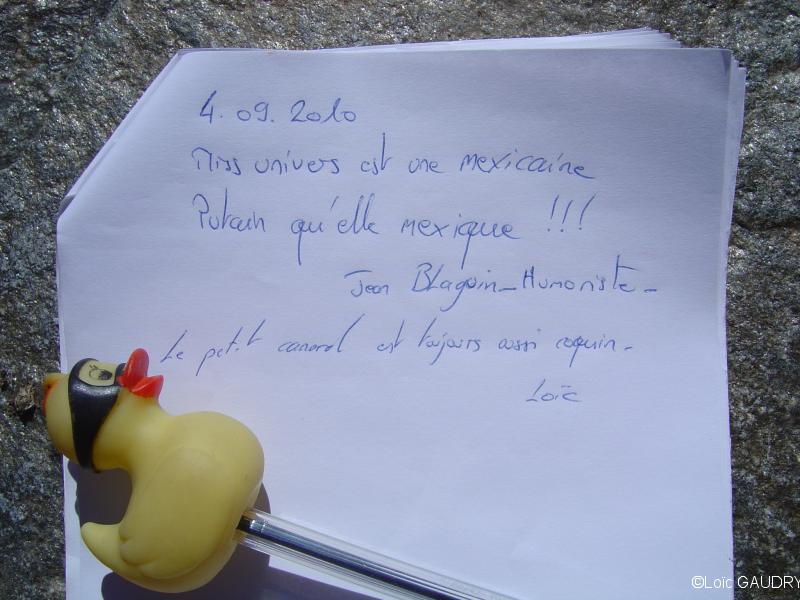 4.09.2010
Miss univers est une mexicaine
Putain qu'elle mexique !!!
Jean BLaguin_Humoriste_
Le petit canard est toujours aussi coquin_
Loïc
©Loïc GAUDRY